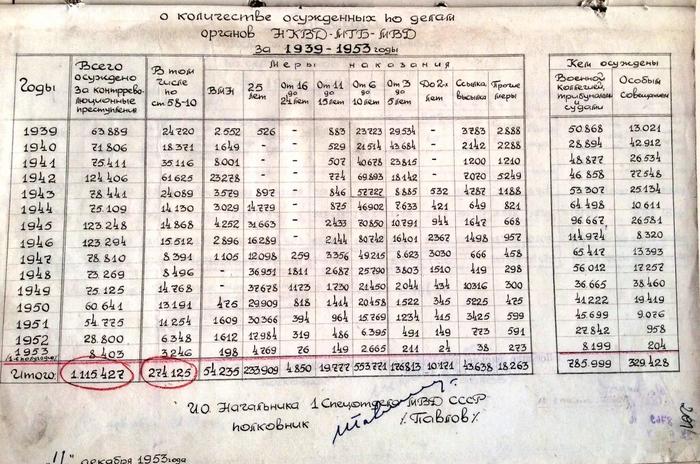 о количестве осужденных по делам
органов НКВД-МГБ-МВД
за 1939-1953 годы
Годы | Всего осуждено за контррево-люционные преступления | В том числе по ст 58-10 | Меры наказания | Кем осуждены
ВМН | 25 лет | От 16 до 24 лет | От 11 до 15 лет | От 6 до 10 лет | От 3 до 5 лет | До 2-х лет | Ссылка, высылка | Прочие меры | Военной коллегией, трибуналами судами | Особым совещанием
1939 63.889 24.720 2.552 526 - 883 23.723 29.534 - 3783 2.888 50.868 13.021
1940 71.806 18.371 1649 - - 529 21.514 43.684 - 2142 2288 28.894 42.912
1941 75.411 35.116 8.001 - - 507 40.678 23.815 - 1200 1210 48.877 26.534
1942 124.406 61.625 23278 - - 774 69.893 18.142 - 7070 5249 46.858 77.548
1943 78.441 24.089 3.579 897 - 846 57.727 8.885 532 4787 1188 53.307 25.134
1944 75.109 14.130 3.029 14.779 - 875 46902 7.633 421 649 821 64.498 10.611
1945 123.248 14.868 4.252 31.663 - 2433 70.850 10.791 944 1647 668 96.667 26.581
1946 123.294 15.512 2.896 16.289 - 2144 80.742 16.401 2367 1498 957 114.974 8.320
1947 78.810 8.391 1.105 12.098 259 3.356 49.215 8.623 3030 666 458 65.417 13.393
1948 73.269 8.496 - 36951 1811 2.687 25.790 3.803 1510 419 298 56.012 17.257
1949 75.125 14.768 - 37.678 1173 1730 21.450 2.044 434 10316 300 36.665 38.460
1950 60.641 13.191 475 29.909 818 1414 20.458 1522 345 5225 475 41.222 19.419
1951 54.775 11.254 1609 30.366 394 964 15.769 1234 415 3425 599 45.699 9.076
1952 28.800 6.348 1612 17.984 319 486 6.395 491 149 773 591 27.842 958
1953 8.403 3.246 198 4.769 76 149 2.665 211 24 38 273 8.199 204
Итого: 1.115.427 274.125 54.235 233909 4.850 19.777 553.771 176813 10.171 43.638 18.263 785.999 329.428
И.О. Начальника 1 Спецотдела МВД СССР
полковник /Павлов/
"11" декабря 1953 года